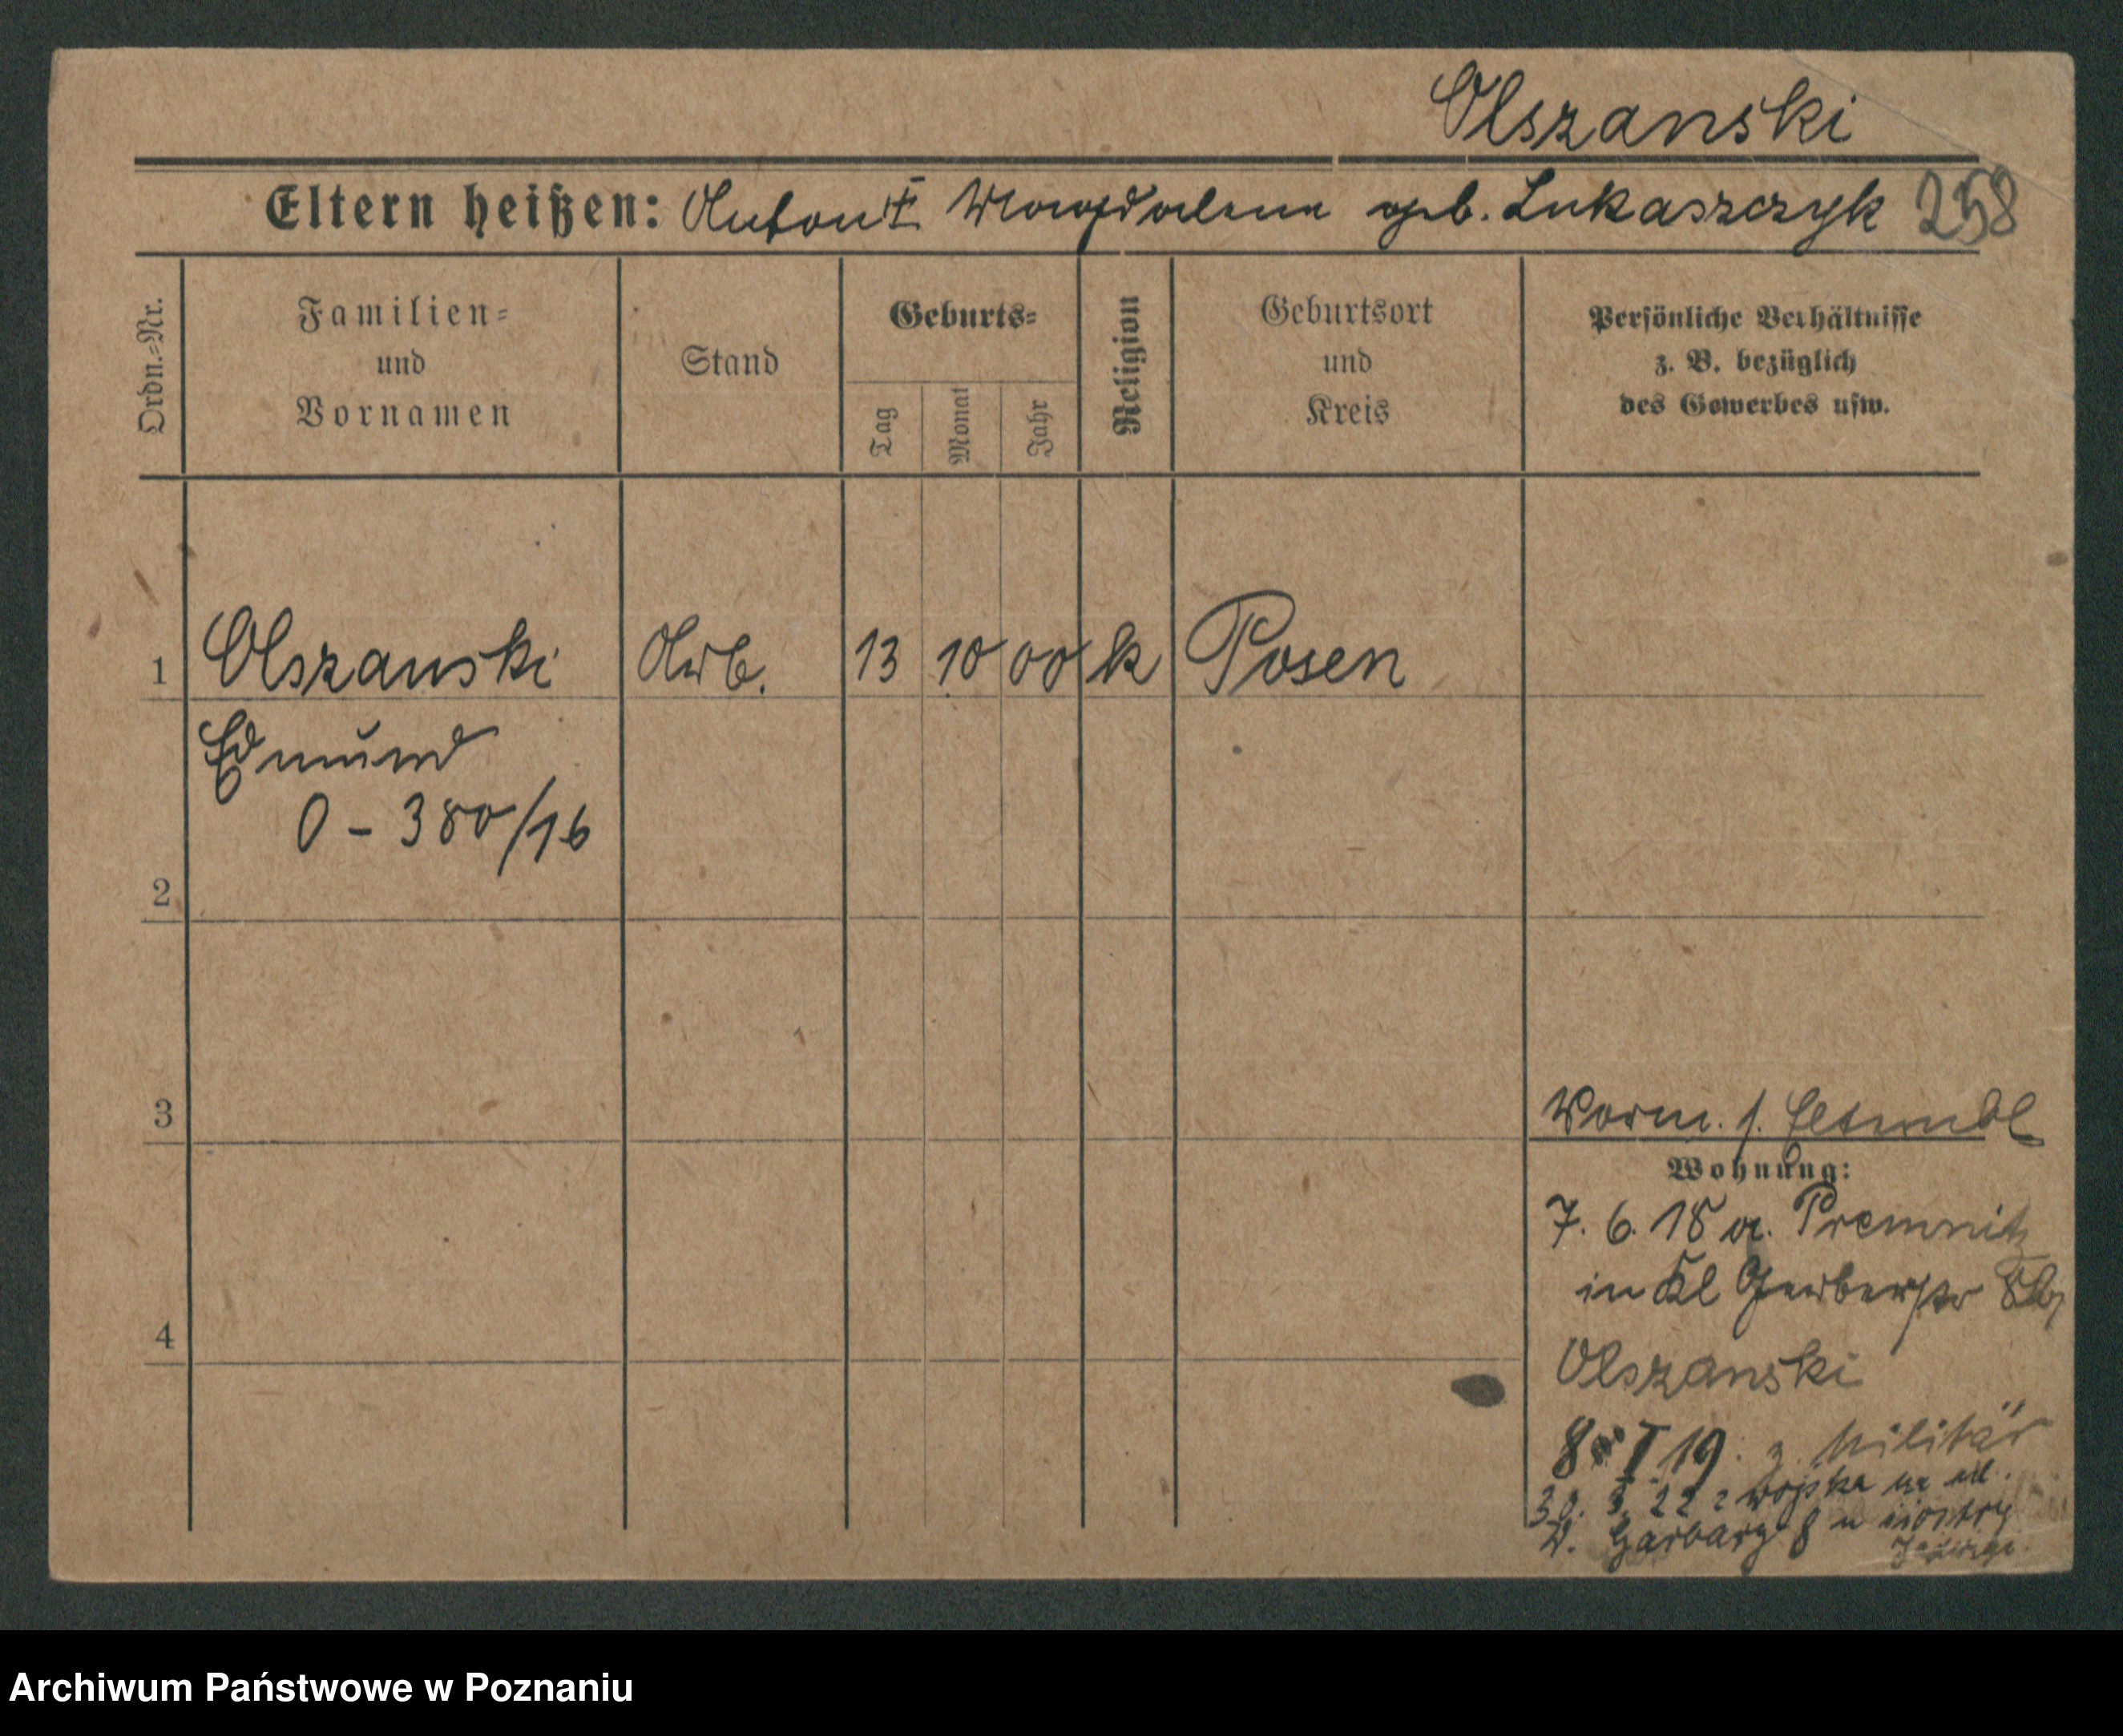 Olszanski
Eltern heißen: Anton † Magdalena geb. Lukaszczyk 258
Ordn.=Nr.
Familien=
und
Vornamen
Stand
Geburts=
Tag
Monat
Jahr
Religion
Geburtsort
und
Kreis
Persönliche Verhältnisse
z. B. bezüglich
des Gewerbes usw.
1 Olszanski Arb. 13 10 00 k Posen
Edmund
0 - 380/16
2
3
Vorm. s.
Wohnung:
7. 6. 18 a. Premnitz
in Kl Gerberstr
Olszanski
8 I 19. z. Militär
30. 22 z wojska na ul.
W. Garbary 8 u siostry
4
Archiwum Państwowe w Poznaniu